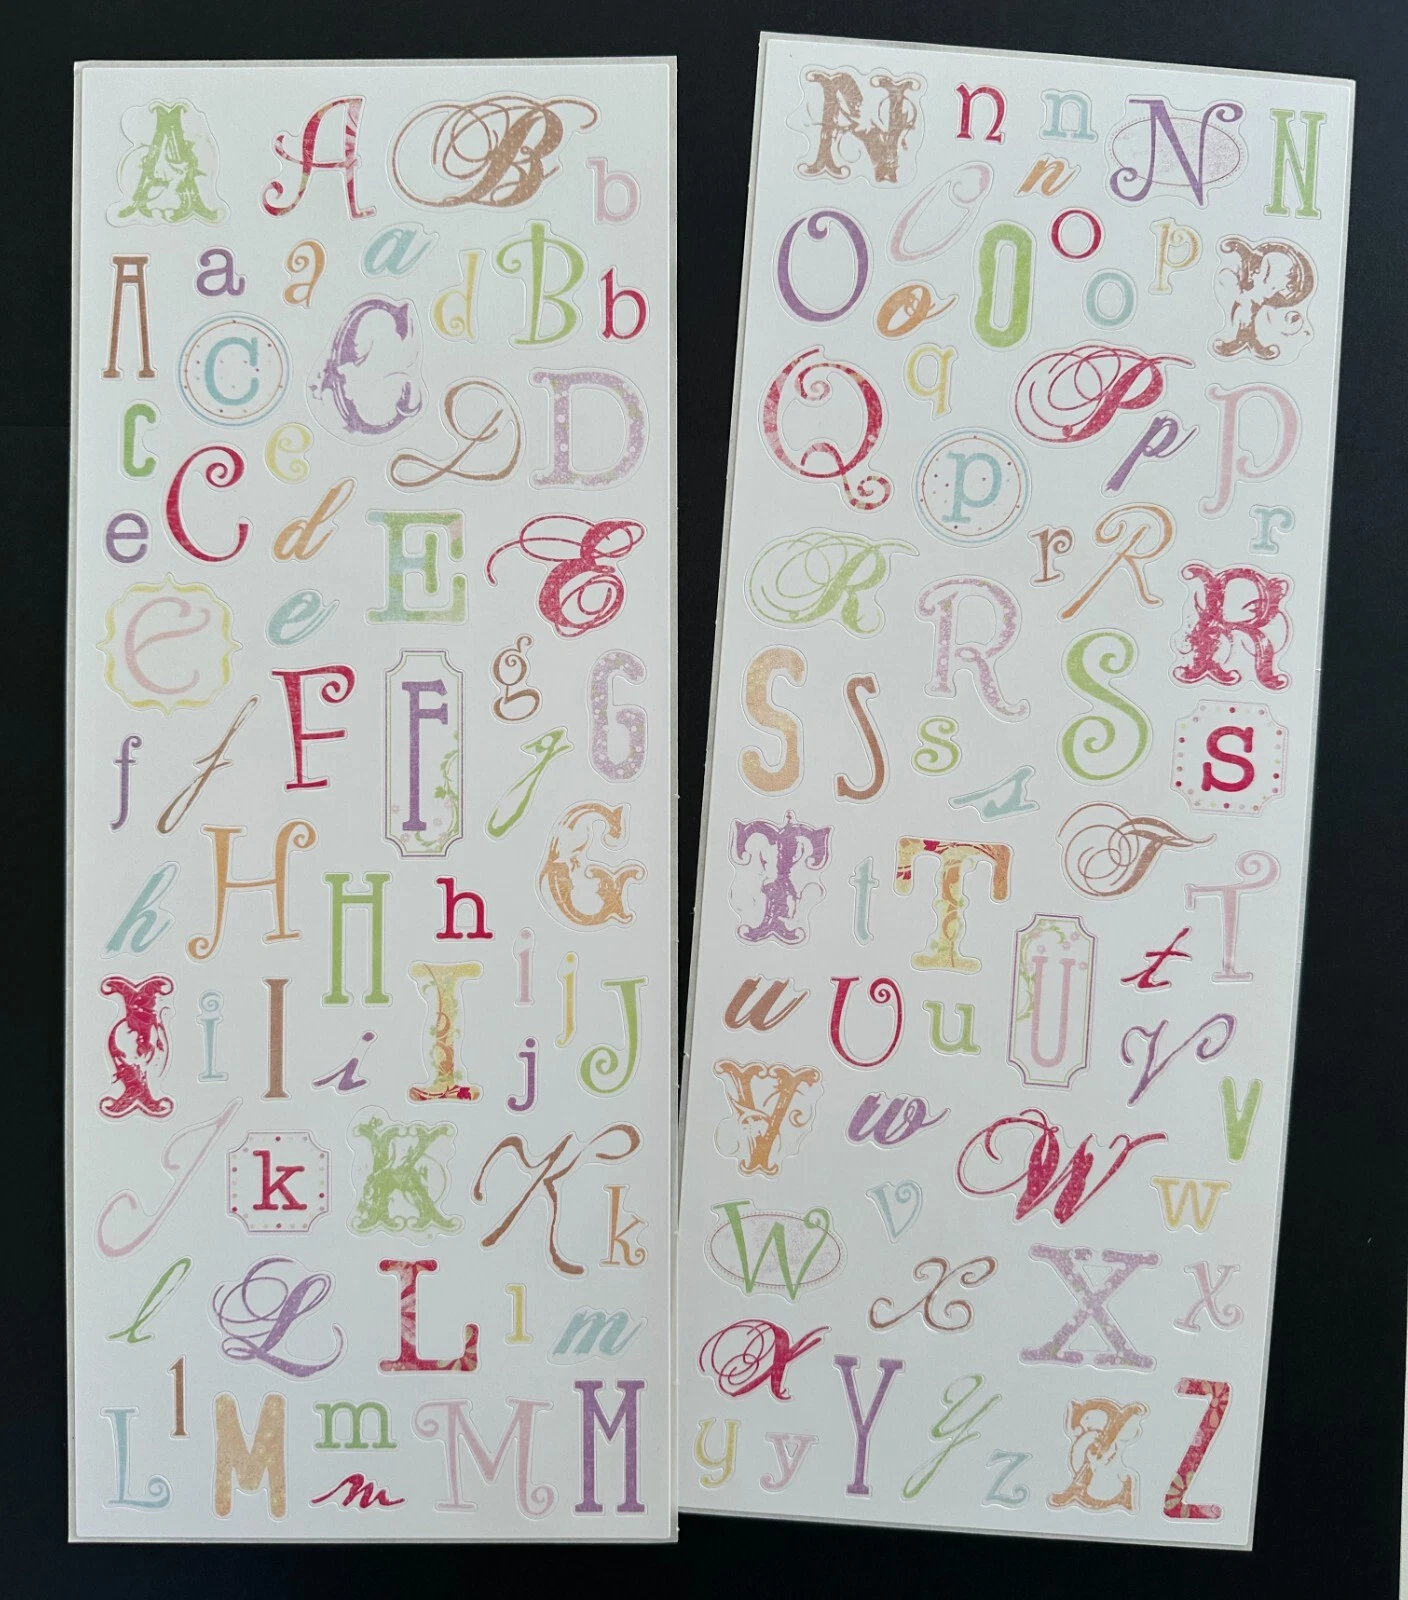 A A B b
A a a a d B b
c C D D
c C e d
e E E
e e g G
f f F F g
h H H h G
I i I i I i j j J
J k K K k
l L L l m
L l M m m M M
N n n n N N
O O O o o p P
o Q q P p p
p r R r
R R R
S S s S s
s T t T T T
t u U u U V
V w W v
W v w
x X x
X y y Y y z Z Z